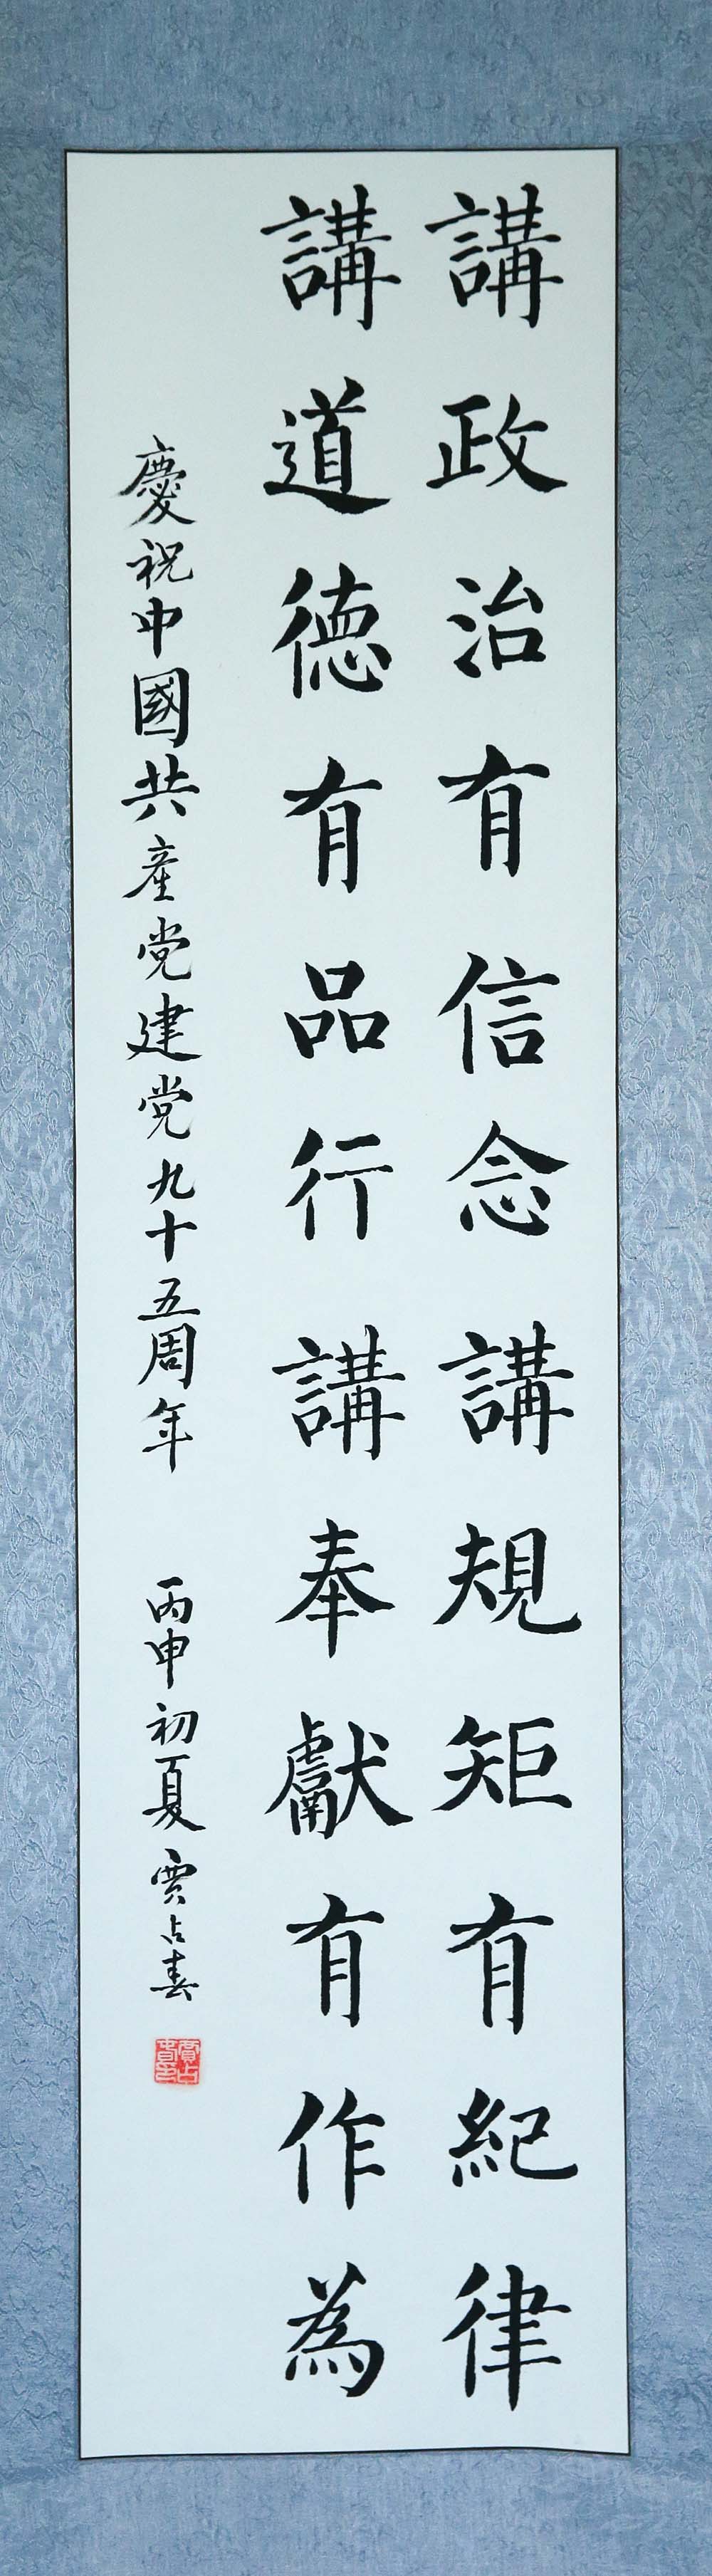 講政治有信念講規矩有紀律
講道德有品行講奉獻有作為
慶祝中國共產党建党九十五周年 丙申初夏 賈占春